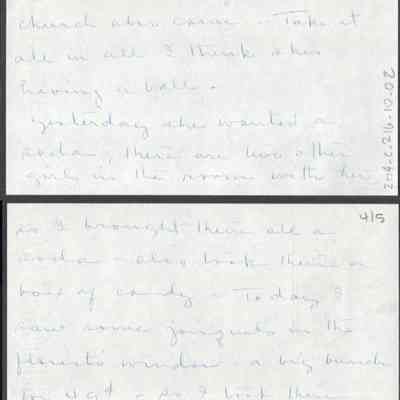 church also came - Take it
all in all I think she's
having a ball.
Yesterday she wanted a
soda, there are two other
girls in the room with her
244-C-216-10-02
4/5
so I brought them all a
soda - also took them a
box of candy - Today I
saw some jonquils in the
florests window - a big bunch
for 49¢ - so I took them